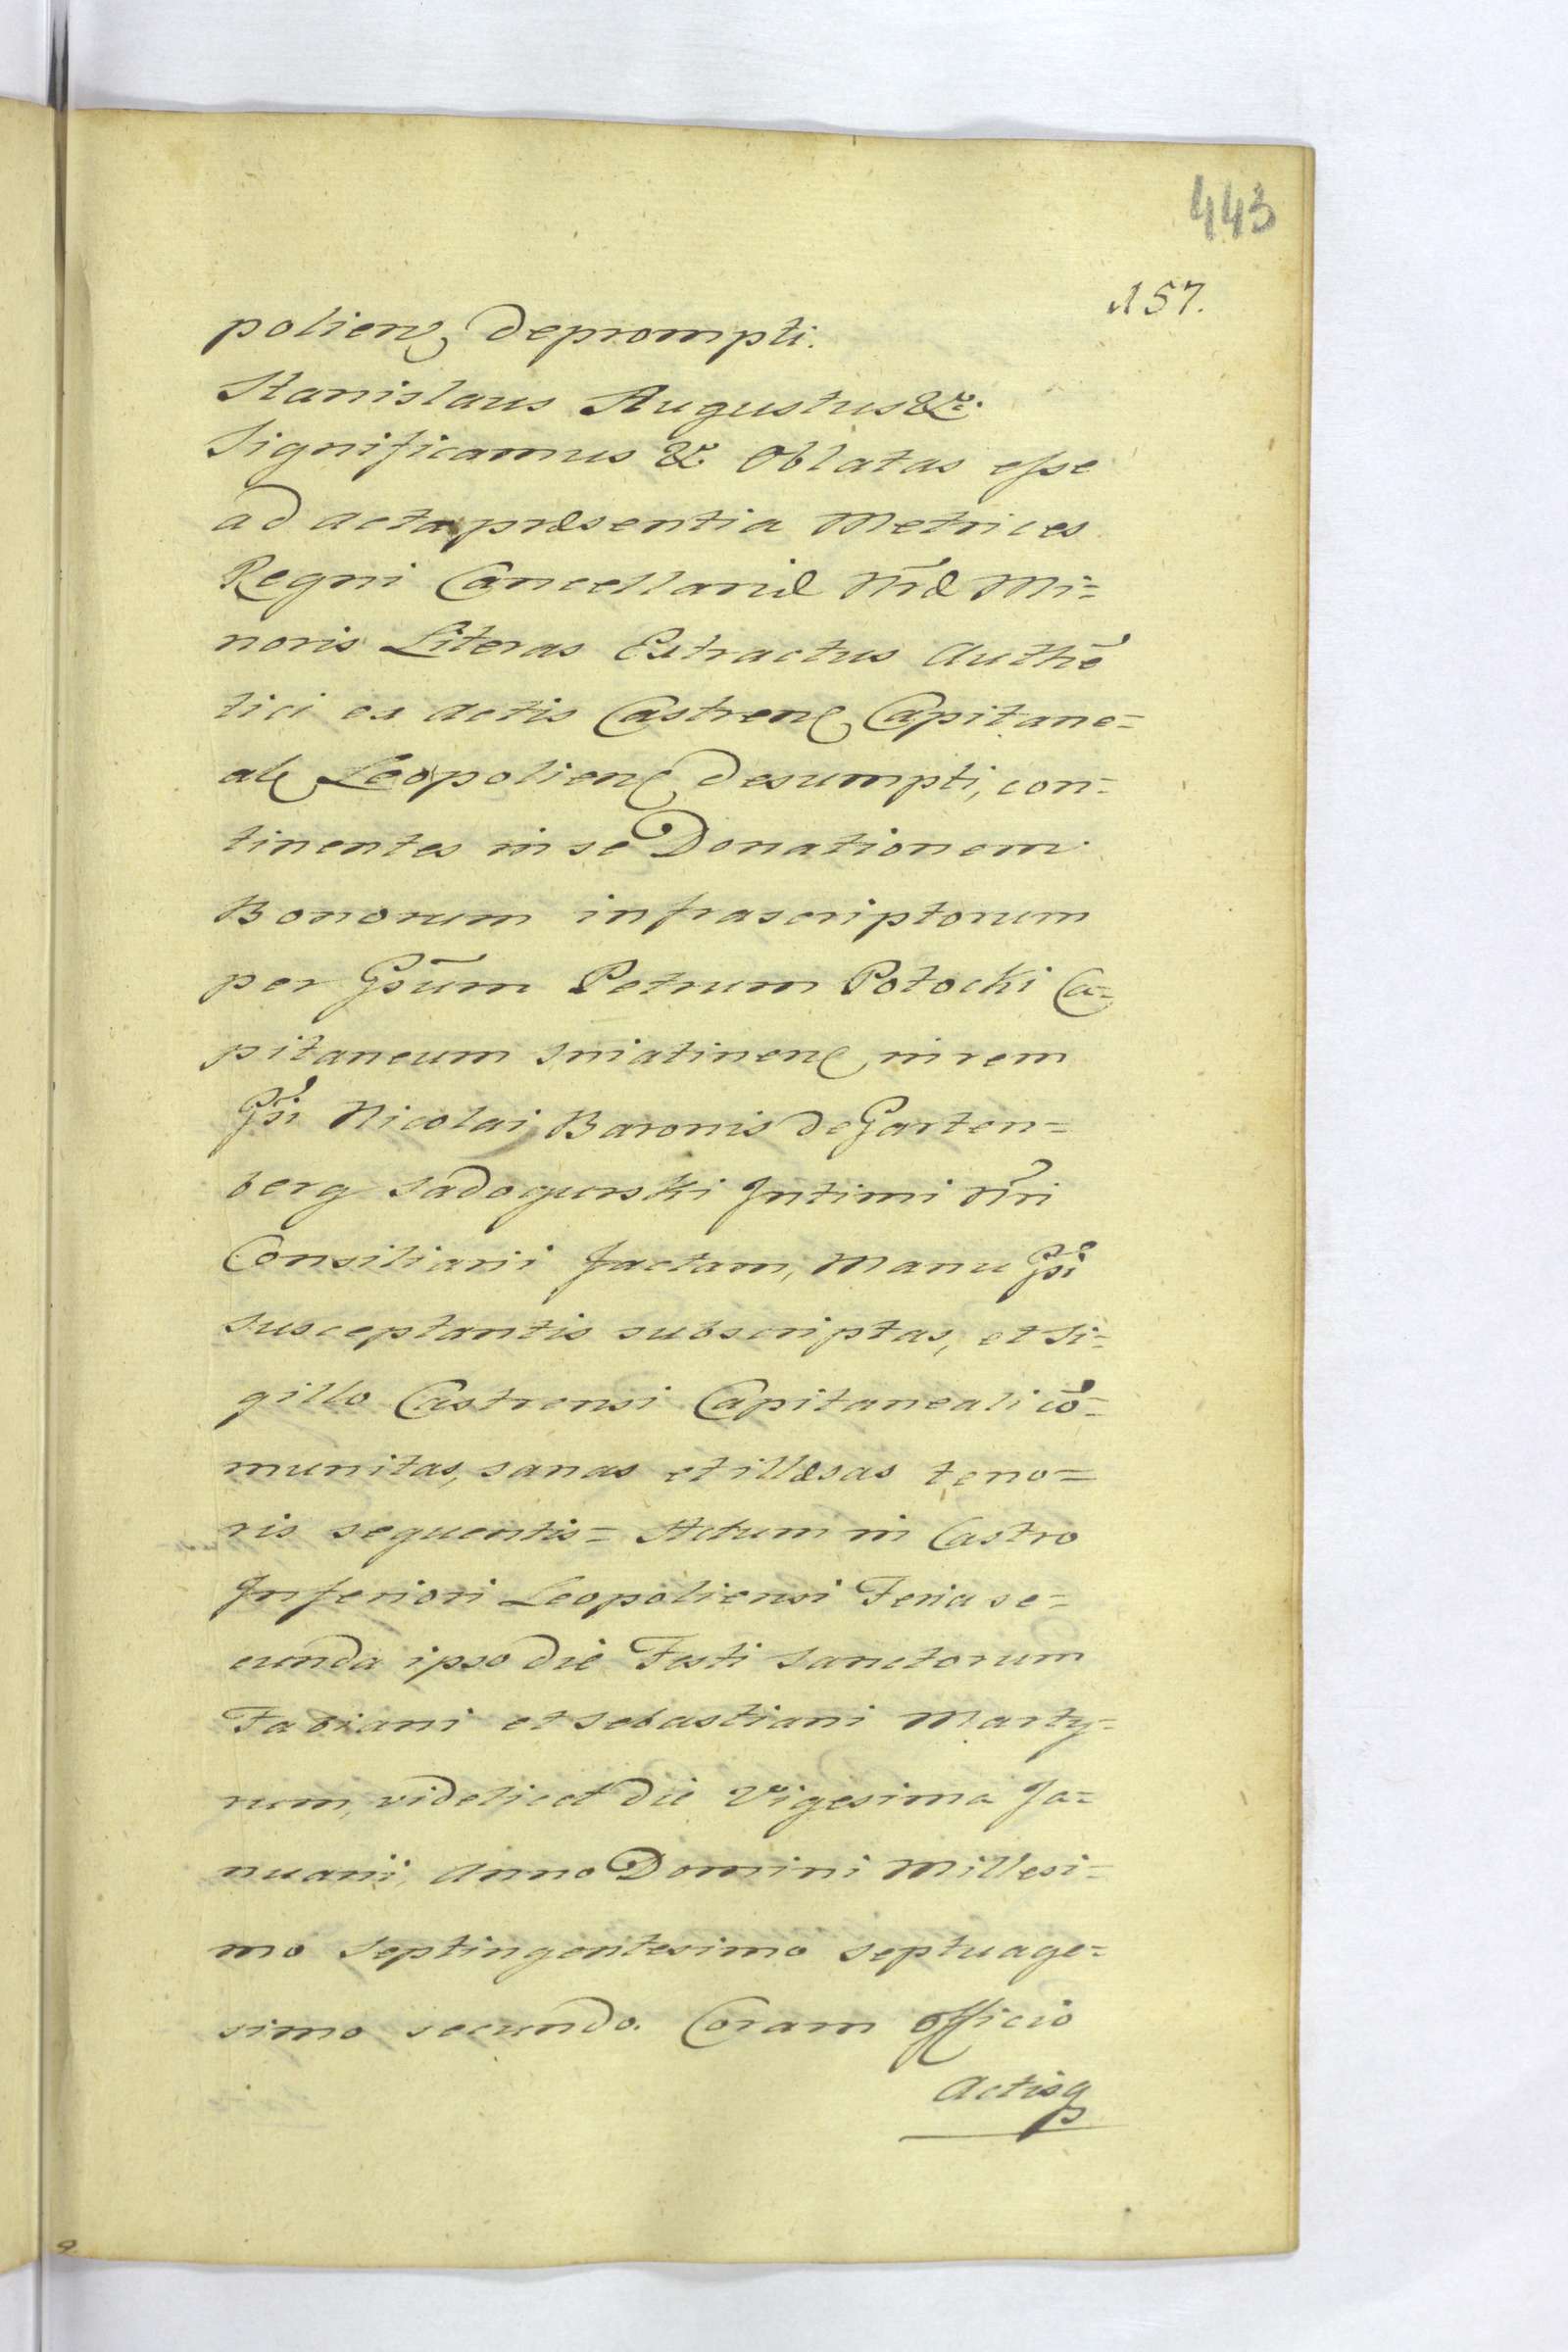 443
157.
poliens deprompti.
Stanislaus Augustus &c.
Significamus &c Oblatas esse
ad acta præsentia Metrices
Regni Cancellariæ Nræ Mi=
noris Literas Extractus Authē
tici ex actis Castrens Capitane=
al Leopoliens desumpti, con=
tinentes in se Donationem
Bonorum infrascriptorum
per Gsum Petrum Potocki Ca=
pitaneum Sniatinens in rem
Gsi Nicolai Baronis de Garten=
berg Sadogurski Intimi Nri
Consiliarii factam, Manu Gsi
susceptantis subscriptas, et Si=
gillo Castrensi Capitaneali cō=
munitas, sanas et illæsas teno=
ris sequentis= Actum in Castro
Inferiori Leopoliensi Feria se=
cunda ipso die Festi Sanctorum
Fabiani et Sebastiani Marty=
rum, videlicet die Vigesima Ja=
nuarii, Anno Domini Millesi=
mo Septingentesimo septuage=
simo secundo. Coram Officio
Actisq